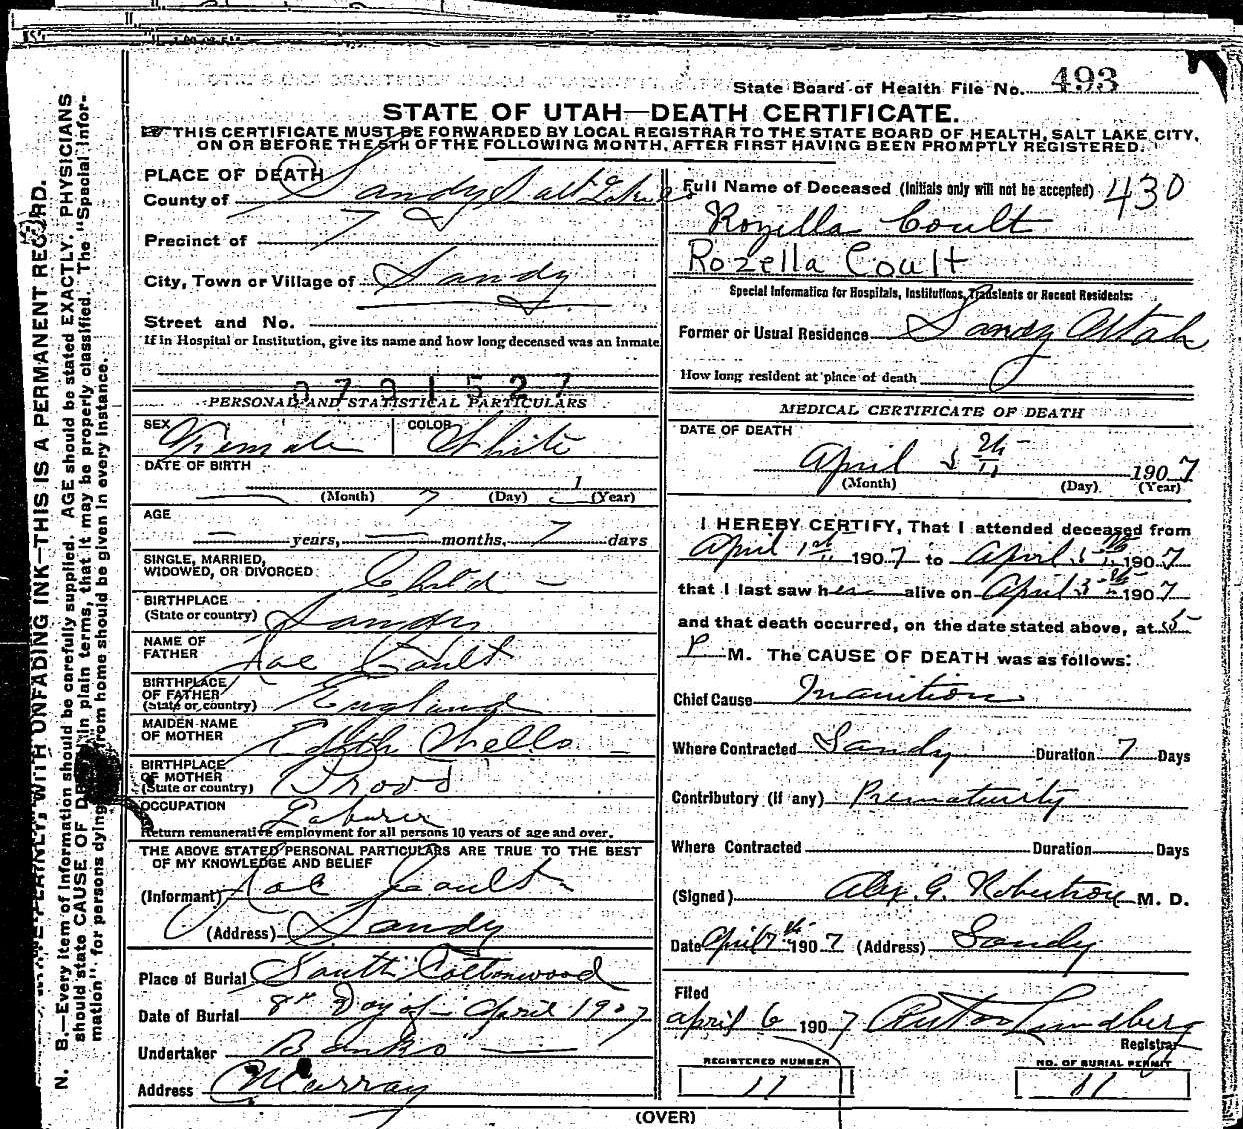 State Board of Health File No. 493
STATE OF UTAH—DEATH CERTIFICATE.
THIS CERTIFICATE MUST BE FORWARDED BY LOCAL REGISTRAR TO THE STATE BOARD OF HEALTH, SALT LAKE CITY,
ON OR BEFORE THE 5TH OF THE FOLLOWING MONTH, AFTER FIRST HAVING BEEN PROMPTLY REGISTERED.
N. B.—Every item of information should be carefully supplied. AGE should be stated EXACTLY. PHYSICIANS
should state CAUSE OF DEATH in plain terms, that it may be properly classified. The "Special Infor-
mation" for persons dying from home should be given in every instance.
WITH UNFADING INK—THIS IS A PERMANENT RECORD.
PLACE OF DEATH
County of Sandy Salt Lake Co
Precinct of
City, Town or Village of Sandy
Street and No.
If in Hospital or Institution, give its name and how long deceased was an inmate
0791527
PERSONAL AND STATISTICAL PARTICULARS
SEX Female COLOR White
DATE OF BIRTH
(Month) 7 (Day) 1 (Year)
AGE
— years, — months, 7 days
SINGLE, MARRIED,
WIDOWED, OR DIVORCED Child —
BIRTHPLACE
(State or country) Sandy
NAME OF
FATHER Coult
BIRTHPLACE
OF FATHER
(State or country) England
MAIDEN NAME
OF MOTHER Edith
BIRTHPLACE
OF MOTHER
(State or country) Provo
OCCUPATION Laborer
Return remunerative employment for all persons 10 years of age and over.
THE ABOVE STATED PERSONAL PARTICULARS ARE TRUE TO THE BEST
OF MY KNOWLEDGE AND BELIEF
(Informant) Coult
(Address) Sandy
Place of Burial South Cottonwood
Date of Burial 8th Day of April 1907
Undertaker Banks
Address Murray
Full Name of Deceased (Initials only will not be accepted) 430
Rozella Coult
Rozella Coult
Special Information for Hospitals, Institutions, Transients or Recent Residents:
Former or Usual Residence Sandy Utah
How long resident at place of death
MEDICAL CERTIFICATE OF DEATH
DATE OF DEATH
April 5th 1907
(Month) (Day) (Year)
I HEREBY CERTIFY, That I attended deceased from
April 1st 1907 to April 5th 1907
that I last saw her alive on April 5th 1907
and that death occurred, on the date stated above, at 5
P M. The CAUSE OF DEATH was as follows:
Chief Cause Inanition
Where Contracted Sandy Duration 7 Days
Contributory (if any) Prematurity
Where Contracted Duration Days
(Signed) Alex. G. Robertson M. D.
Date April 7th 1907 (Address) Sandy
Filed
april 6 1907 Lundberg
Registrar
REGISTERED NUMBER
11
NO. OF BURIAL PERMIT
11
(OVER)